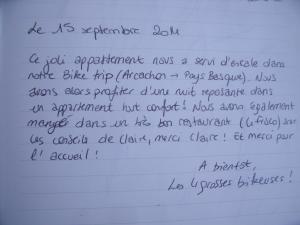 Le 15 septembre 2011
Ce joli appartement nous a servi d'escale dans
notre Bike trip (Arcachon → Pays Basque). Nous
avons alors profiter d'une nuit reposante dans
un appartement tout confort! Nous avons également
mangés dans un très bon restaurant (
les conseils de Claire, merci Claire! Et merci pour
l'accueil!
A bientôt,
Les 4 grosses bikeuses!